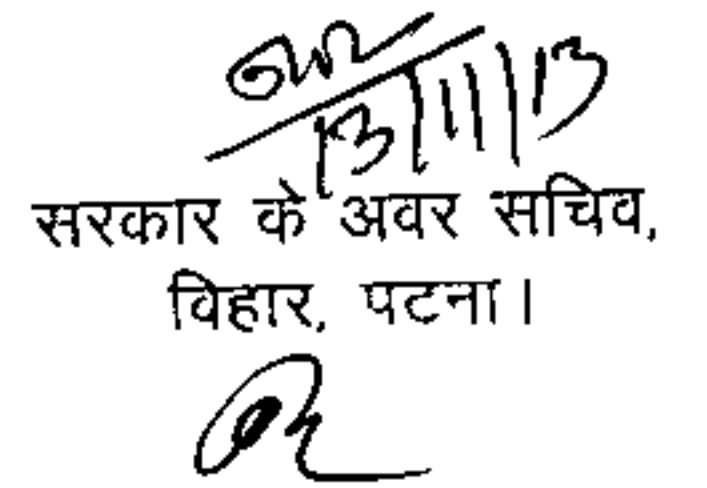 13/11/13
सरकार के अवर सचिव,
विहार, पटना।